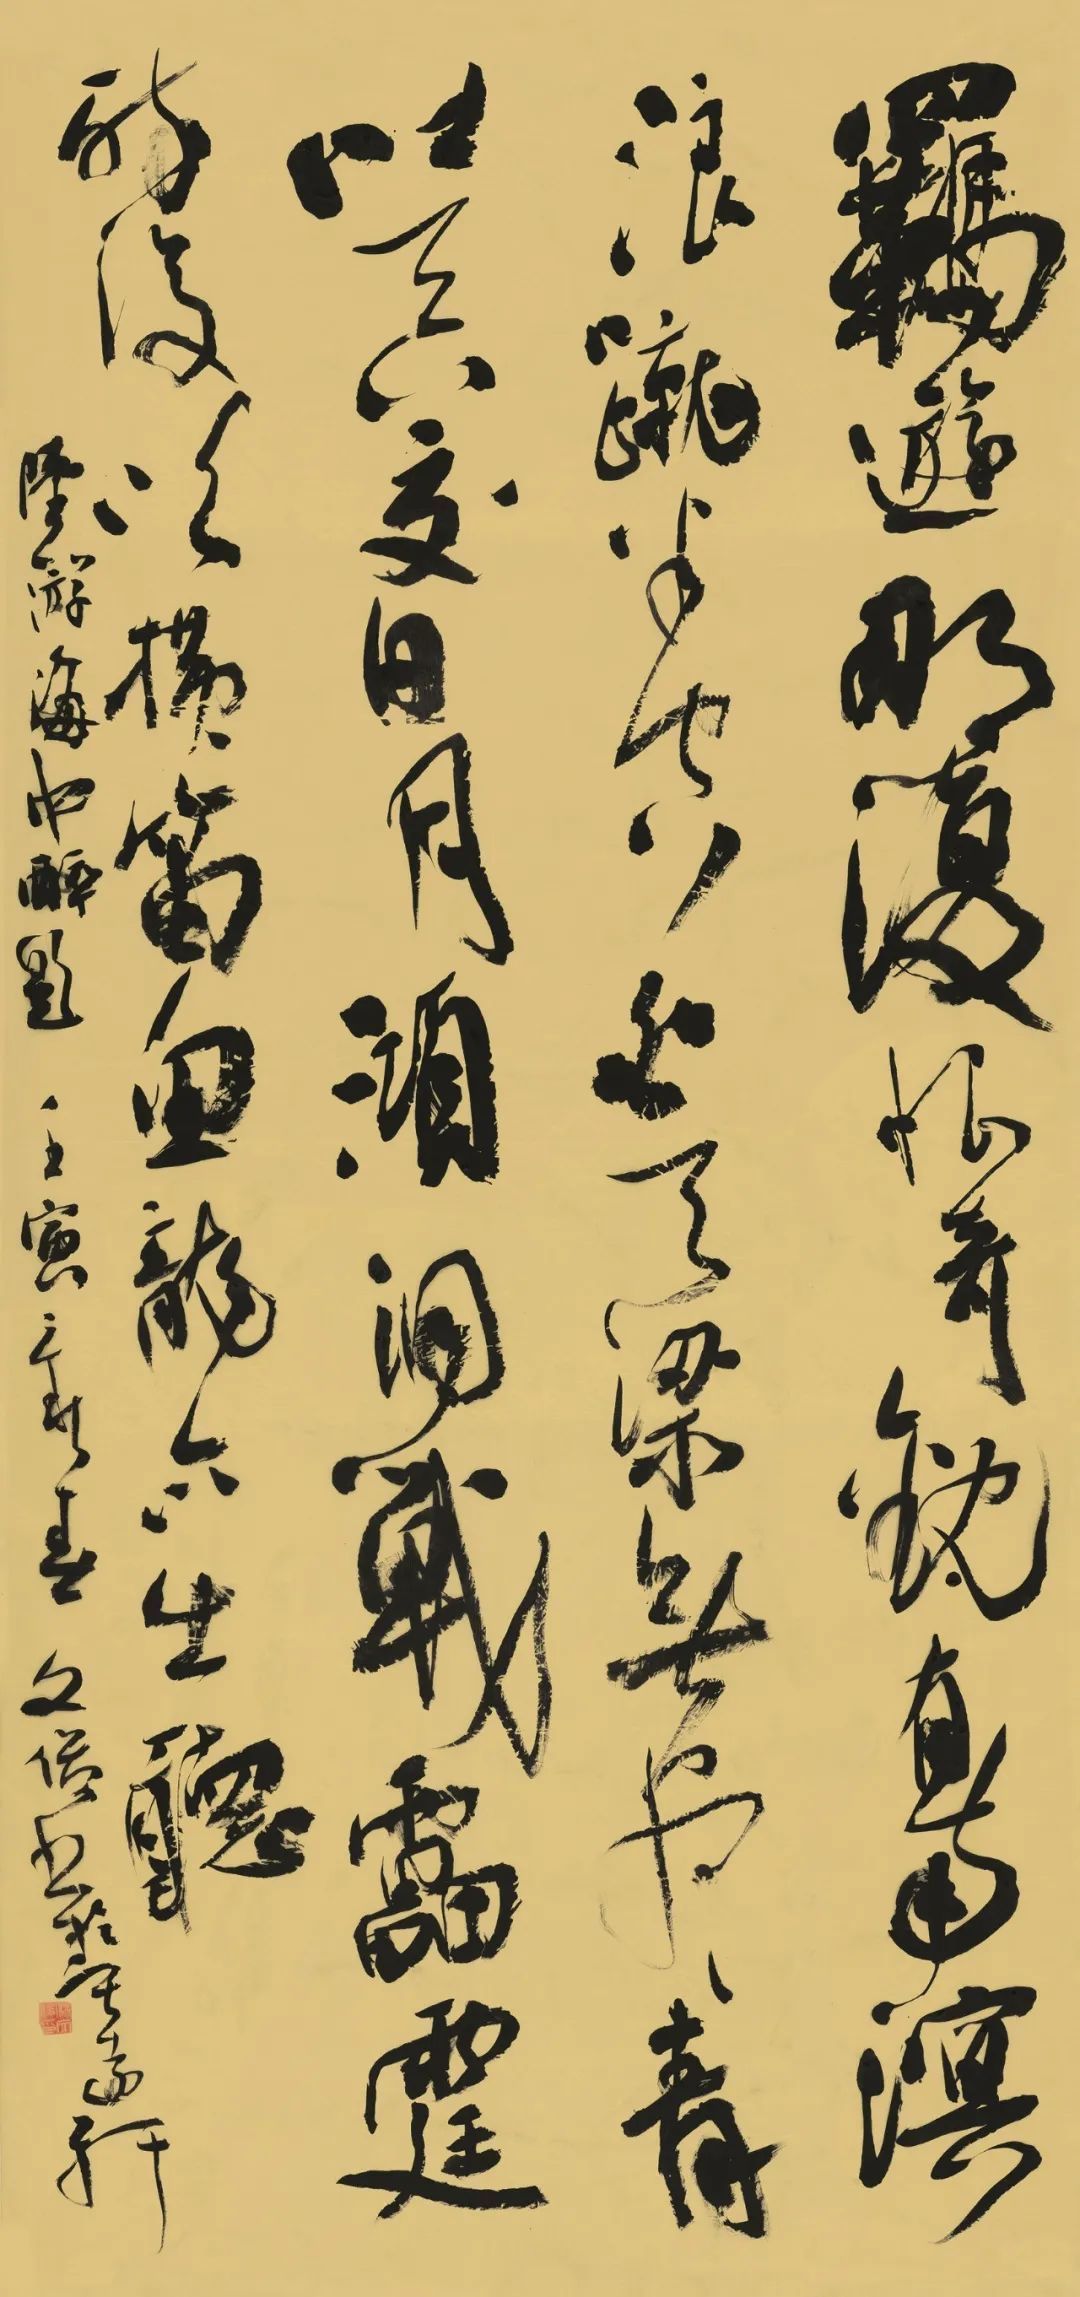 羈遊那復恨奇觀有南溟
浪蹴半空白天浮無盡青
吐吞交日月澒洞戰雷霆
醉後吹橫笛魚龍亦出聽
陸游海中醉題 壬寅新春 文俊书於軒